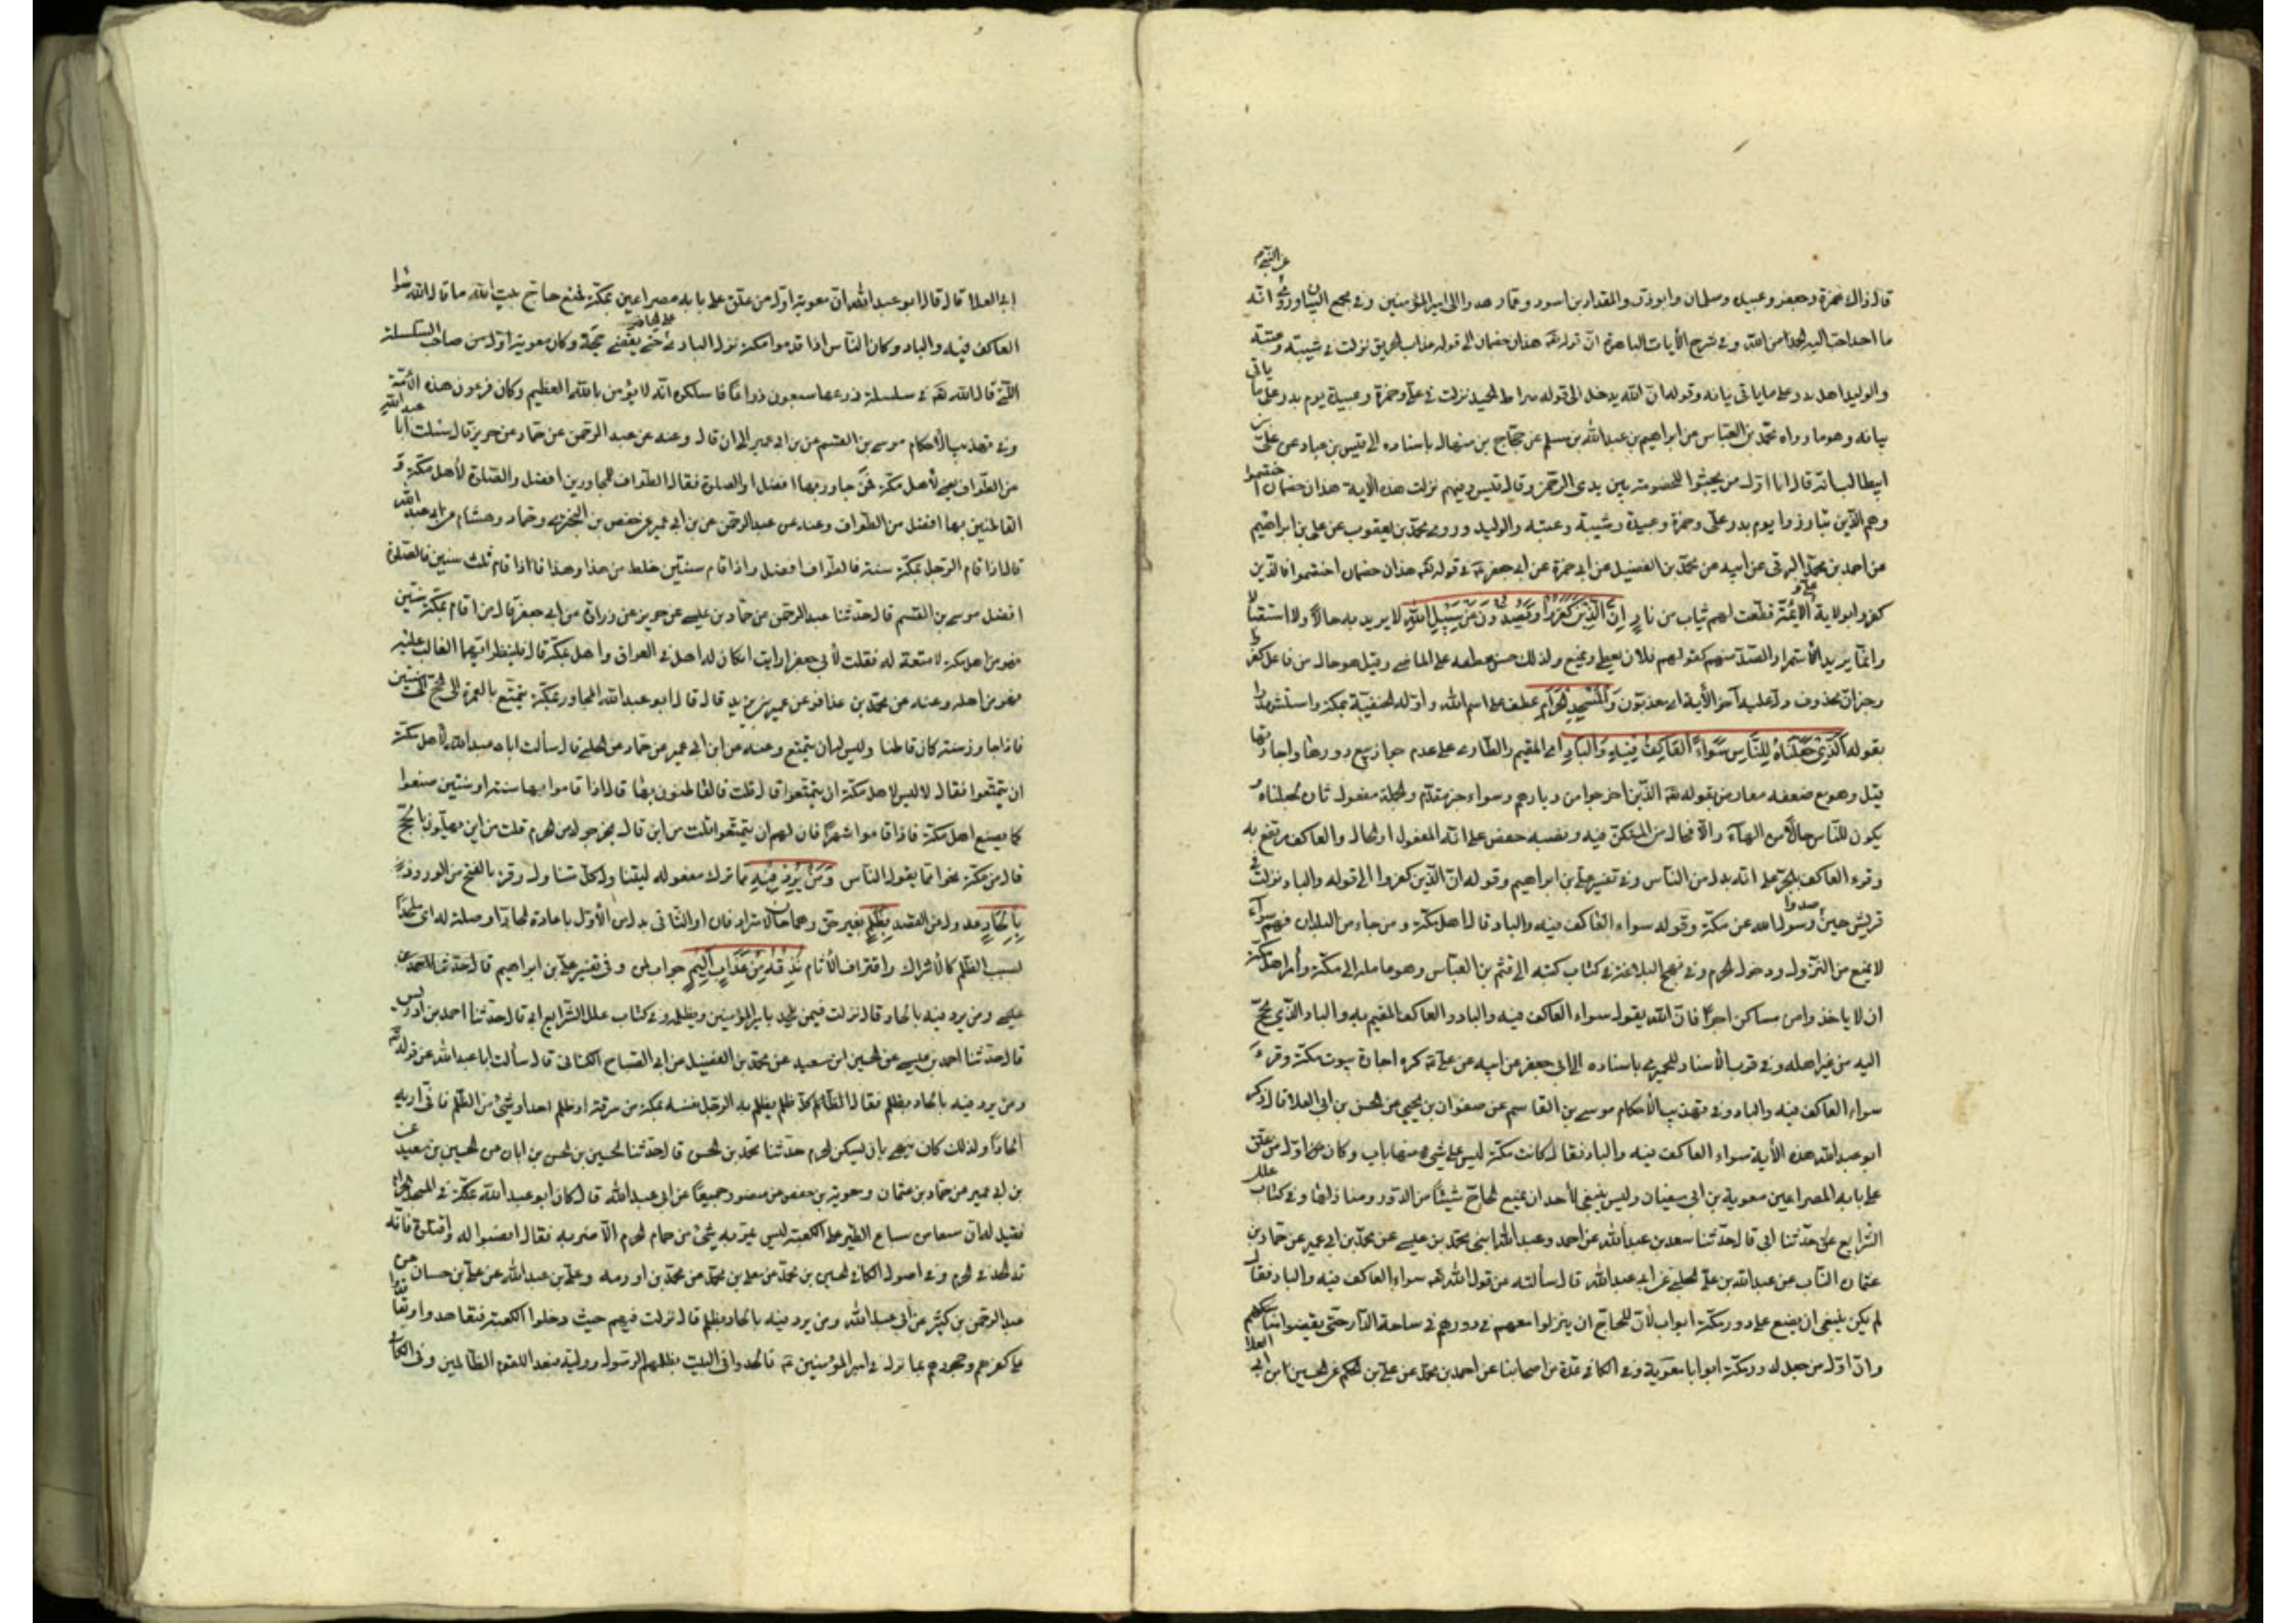 عن النبي م
قال ذاك حمزة وجعفر وعبيدة وسلمان وابو ذر والمقداد بن اسود وعمار هدوا الى امير المؤمنين وفي مجمع البيان وروى انه
ما احد احب اليه الحمد من الله وفي شرح الآيات الباهرة ان قوله تع هذان خصمان الى قوله عذاب الحريق نزلت في شيبة وعتبة
والوليد اهل بدر على ما ياتي بيانه وقوله ان الله يدخل الى قوله صراط الحميد نزلت في علي وحمزة وعبيدة يوم بدر على ما ياتي
بيانه وهو ما رواه محمد بن العباس عن ابراهيم بن عبد الله بن مسلم عن حجاج بن منهال باسناده الى قيس بن عباد عن علي بن
ابيطالب انه قال انا اول من يجثوا للخصومة بين يدى الرحمن وقال قيس وفيهم نزلت هذه الآية هذان خصمان اختصموا
وهم الذين تبارزوا يوم بدر علي وحمزة وعبيدة وشيبة وعتبة والوليد وروى محمد بن يعقوب عن علي بن ابراهيم
عن احمد بن محمد البرقي عن ابيه عن محمد بن الفضيل عن ابي حمزة عن ابي جعفر ع في قوله تع هذان خصمان اختصموا فالذين
كفروا بولاية علي و الائمة قطعت لهم ثياب من نار إن الذين كفروا ويصدون عن سبيل الله لا يريد به حالا ولا استقبالا
وانما يريد استمرار الصد منهم كقولهم فلان يعطى ويمنع ولذلك حسن عطفه على الماضي وقيل هو حال من فاعل كفروا
وخبر ان محذوف دل عليه آخر الآية اي معذبون والمسجد الحرام عطف على اسم الله واوله الحنفية بمكة واستشهدوا
بقوله الذي جعلناه للناس سواء العاكف فيه والباد اى المقيم والطارى على عدم جواز بيع دورها واجارتها
قيل وهو مع ضعفه معارض بقوله تع الذين اخرجوا من ديارهم وسواء خبر مقدم والجملة مفعول ثان لجعلناه
يكون للناس حالا من الهاء والا فحال من المستكن فيه ونصبه حفص على انه المفعول او الحال والعاكف مرتفع به
وقرء العاكف بالجر على انه بدل من الناس وفي تفسير علي بن ابراهيم وقوله ان الذين كفروا الى قوله والباد نزلت في
قريش حين صدوا رسول الله عن مكة وقوله سواء العاكف فيه والباد قال اهل مكة ومن جاء من البلدان فهم سواء
لا يمنع من النزول ودخول الحرم وفي نهج البلاغة في كتاب كتبه الى قثم بن العباس وهو عامله الى مكة وأمر اهل مكة
ان لا ياخذوا من مساكن اجرا فان الله يقول سواء العاكف فيه والباد والعاكف المقيم به والباد الذي يحج
اليه من غير اهله وفي قرب الاسناد للحميري باسناده الى ابي جعفر عن ابيه عن علي ع كره اجارة بيوت مكة وقرء
سواء العاكف فيه والباد وفي تهذيب الأحكام موسى بن القاسم عن صفوان بن يحيى عن الحسين بن ابي العلا قال ذكر
ابو عبد الله هذه الآية سواء العاكف فيه والباد فقال كانت مكة ليس على شيء منها باب وكان اول من علق
على بابه المصراعين معوية بن ابى سفيان وليس ينبغي لأحد ان يمنع الحاج شيئا من الدور ومنازلها وفي كتاب علل
الشرايع حدثنا ابى قال حدثنا سعد بن عبد الله عن احمد وعبد الله ابني محمد بن عيسى عن محمد بن ابي عمير عن حماد بن
عثمان الناب عن عبيد الله بن علي الحلبي عن ابى عبد الله قال سألته عن قول الله تع سواء العاكف فيه والباد فقال
لم يكن ينبغى ان يصنع على دور مكة ابواب لأن للحاج ان ينزلوا معهم في دورهم في ساحة الدار حتى يقضوا مناسكهم
وان اول من جعل لدور مكة ابوابا معوية وفي الكافي عدة من اصحابنا عن احمد بن محمد عن علي بن الحكم عن الحسين ابن ابي العلا
ابى العلا قال قال ابو عبد الله ان معوية اول من علق على بابه مصراعين بمكة فمنع حاج بيت الله ما قال الله سواء
العاكف فيه والباد وكان الناس اذا قدموا مكة نزل البادى على الحاضر حتى يقضى حجه وكان معوية اول من صاحب السلسلة
التي قال الله تع في سلسلة ذرعها سبعون ذراعا فاسلكوه انه لا يؤمن بالله العظيم وكان فرعون هذه الأمة
وفي تهذيب الأحكام موسى بن القسم عن بن ابى عمير الى ان قال وعنه عن عبد الرحمن عن حماد عن حريز قال سئلت ابا عبد الله
عن الطواف يعنى لأهل مكة ممن جاور بها افضل او الصلوة فقال الطواف للمجاورين افضل والصلوة لأهل مكة و
القاطنين بها افضل من الطواف وعنه عن عبد الرحمن عن بن ابي عمير عن حفص بن البختري وحماد وهشام عن ابي عبد الله
قال اذا قام الرجل بمكة سنة فالطواف افضل واذا قام سنتين خلط من هذا وهذا فاذا قام ثلث سنين فالصلوة
افضل موسى بن القسم قال حدثنا عبد الرحمن عن حماد بن عيسى عن حريز عن زرارة عن ابى جعفر قال من اقام بمكة سنتين
فهو من اهل مكة لا متعة له فقلت لأبي جعفر ارايت ان كان له اهل في العراق واهل بمكة قال فلينظر ايهما الغالب عليه
فهو من اهله وعنه عن محمد بن عذافر عن عمر بن يزيد قال قال ابو عبد الله المجاور بمكة يتمتع بالعمرة الى الحج الى سنتين
فاذا جاوز سنة كان قاطنا وليس له ان يتمتع وعنه عن ابن ابى عمير عن حماد عن الحلبي قال سألت ابا عبد الله لأهل مكة
ان يتمتعوا فقال لا ليس لاهل مكة ان يتمتعوا قال قلت فالقاطنون بها قال اذا قاموا بها سنة او سنتين صنعوا
كما يصنع اهل مكة فاذا قاموا شهرا فان لهم ان يتمتعوا قلت من اين قال يخرجون من الحرم قلت من اين يهلون بالحج
قال من مكة نحوا مما يقول الناس ومن يرد فيه مما ترك مفعوله ليتناول كل متناول وقرء بالفتح من الورود
بإلحاد عدول عن القصد بظلم بغير حق وهما حالان مترادفان او الثاني بدل من الأول باعادة الجار او صلة له اى ملحدا
لسبب الظلم كالأشراك واقتراف الآثام نذقه من عذاب أليم جواب لمن وفي تفسير علي بن ابراهيم قال حدثنا
ومن يرد فيه بالحاد قال نزلت فيمن يلحد بامير المؤمنين ويظلمه وفي كتاب علل الشرايع ابي قال حدثنا احمد بن ادريس
قال حدثنا احمد بن عيسى عن الحسين ابن سعيد عن محمد بن الفضيل عن ابي الصباح الكنانى قال سألت ابا عبد الله عن قوله تع
ومن يرد فيه بالحاد بظلم فقال كل ظلم يظلم به الرجل نفسه بمكة من سرقة او ظلم احد او شيء من الظلم فاني اريه
الحادا ولذلك كان ينهى بان يسكن الحرم حدثنا محمد بن الحسن قال حدثنا الحسين بن الحسن بن ابان عن الحسين بن سعيد عن
بن ابى عمير عن حماد بن عثمان وحوية بن حفص عن منصور جميعا عن ابى عبد الله قال كان ابو عبد الله بمكة في المسجد الحرام
فقيل له ان سبعا من سباع الطير على الكعبة ليس يمر به شئ من حمام الحرم الا ضربه فقال انصبوا له واقتلوه فانه
قد الحد في الحرم وفي اصول الكافي الحسين بن محمد عن معلى بن محمد عن محمد بن اورمه وعلي بن عبد الله عن علي بن حسان عن
عبد الرحمن بن كثير عن ابى عبد الله ومن يرد فيه بالحاد بظلم قال نزلت فيهم حيث دخلوا الكعبة فتعاهدوا وتعاقدوا
على كفرهم وجحودهم بما نزل في امير المؤمنين ع فالحدوا في البيت بظلمهم الرسول ووليه فبعدا للقوم الظالمين وفي الكافي